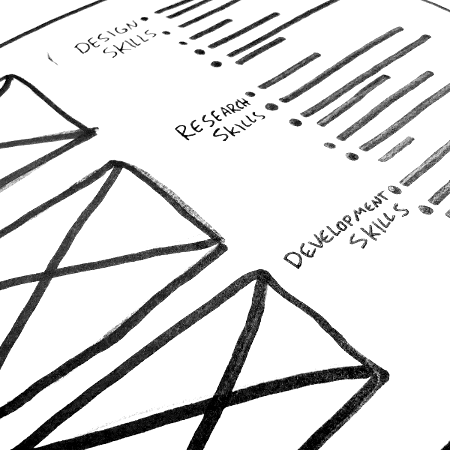 DESIGN
SKILLS
RESEARCH
SKILLS
DEVELOPMENT
SKILLS